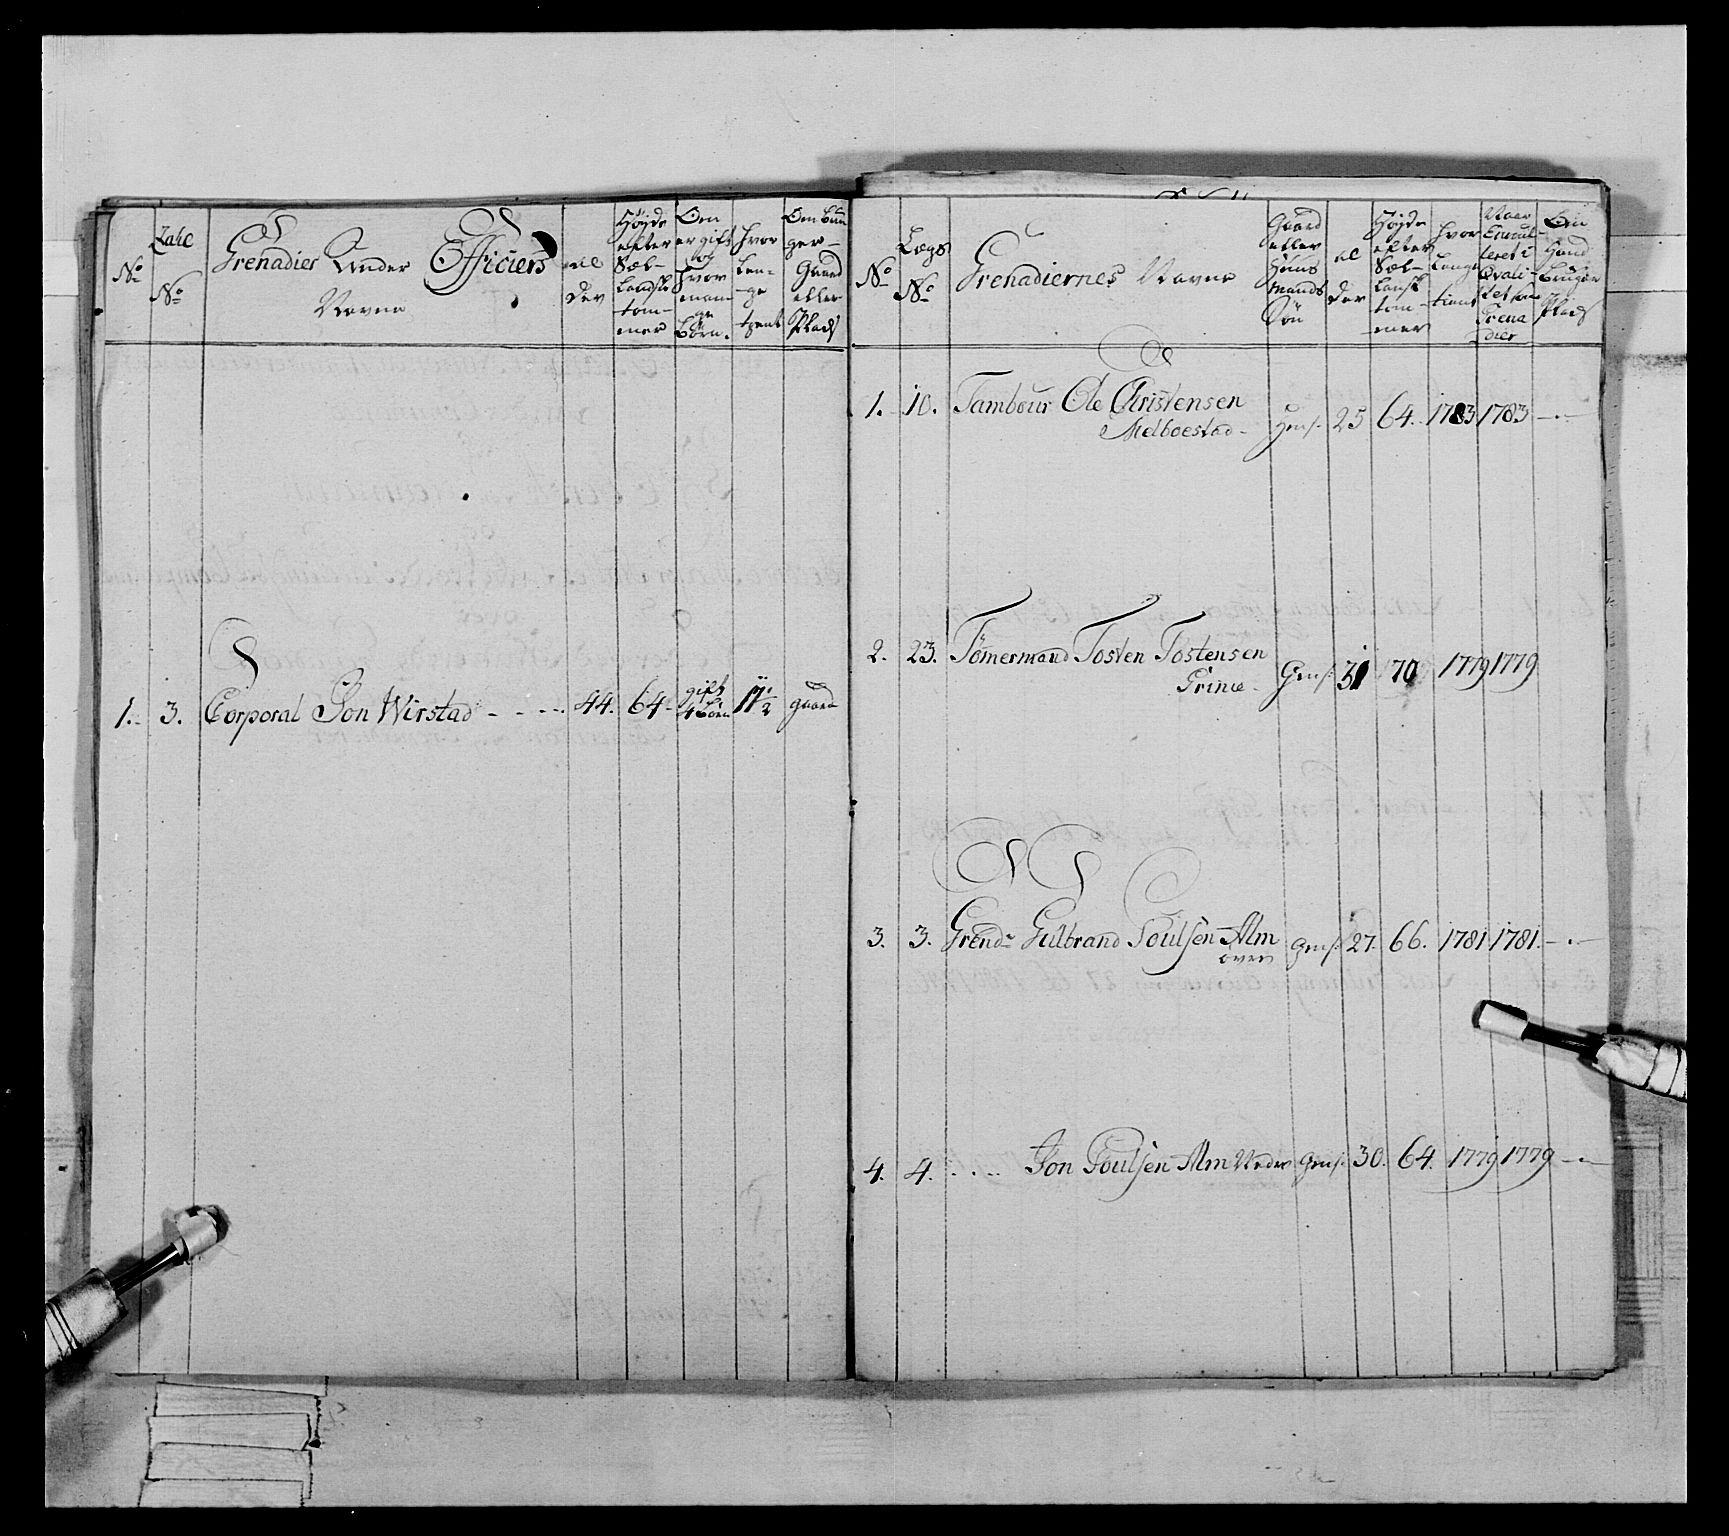 No
Zahl
No
Grenadier Under Officiers
Navne
al
der
Høyde
efter
Sæl-
landsk
tom-
mer
Om
er gift
og
hvor
man-
ge
børn.
hvor
Len-
ge
tient
gaard
eller
Plads
1. 3. Corporal Jon Wirstad - - - 44. 64.
gift
4 Børn
gaard
No
Lægs
No
Grenadiernes Navne
Gaard
eller
Huus
mands
Søn
al
der
Høyde
efter
Sæl-
lansk
tom-
mer
hvor
Lenge
tient
Grena
dier
Om
Hand
Plads
1. 10. Tambour Ole Christensen
Melboestad - 25 64. 1783 1783 - . -
2. 23. Tømermand Tosten Tostensen
Grine - Gms. 31 70 1779 1779
3. 3. Grendr Gulbrand Poulsen Alm
øvre Gms. 27. 66. 1781. 1781. - . -
4. 4. . . . . Jon Poulsen Alm Nedre Gms. 30. 64. 1779 1779 - . -